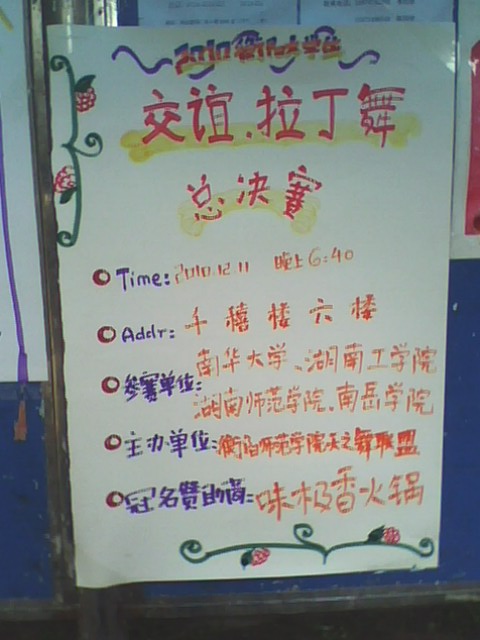 2010衡阳大学生
交谊、拉丁舞
总决赛
Time: 2010.12.11 晚上6:40
Addr: 千禧楼六楼
参赛单位: 南华大学、湖南工学院
湖南师范学院、南岳学院
主办单位: 衡阳师范学院天之舞联盟
冠名赞助商: 味极香火锅